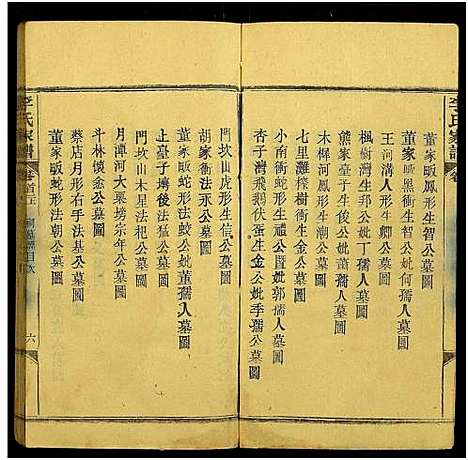 李氏家譜
董家畈鳳形生智公墓圖
董家畈黑衝生智公妣何孺人墓圖
王河溝人形生卿公墓圖
楓樹灣生邦公妣丁孺人墓圖
熊家臺子生俊公妣蕭孺人墓圖
木樨河鳳形生桐公墓圖
七里灘樟樹衝生金公墓圖
小南衝蛇形生禮公暨妣郭孺人墓圖
杏子灣飛鵝伏蛋生金公妣季孺公墓圖
門坎山虎形生信公墓圖
胡家衝法安公墓圖
董家畈蛇形法蛟公妣董孺人墓圖
上臺子塆後法猛公墓圖
門坎山木星法杞公墓圖
月潭河大栗塝宗年公墓圖
斗林懷念公墓圖
蔡店月形右手法基公墓圖
董家畈蛇形法朝公墓圖
李氏家譜
卷首下
目次
六